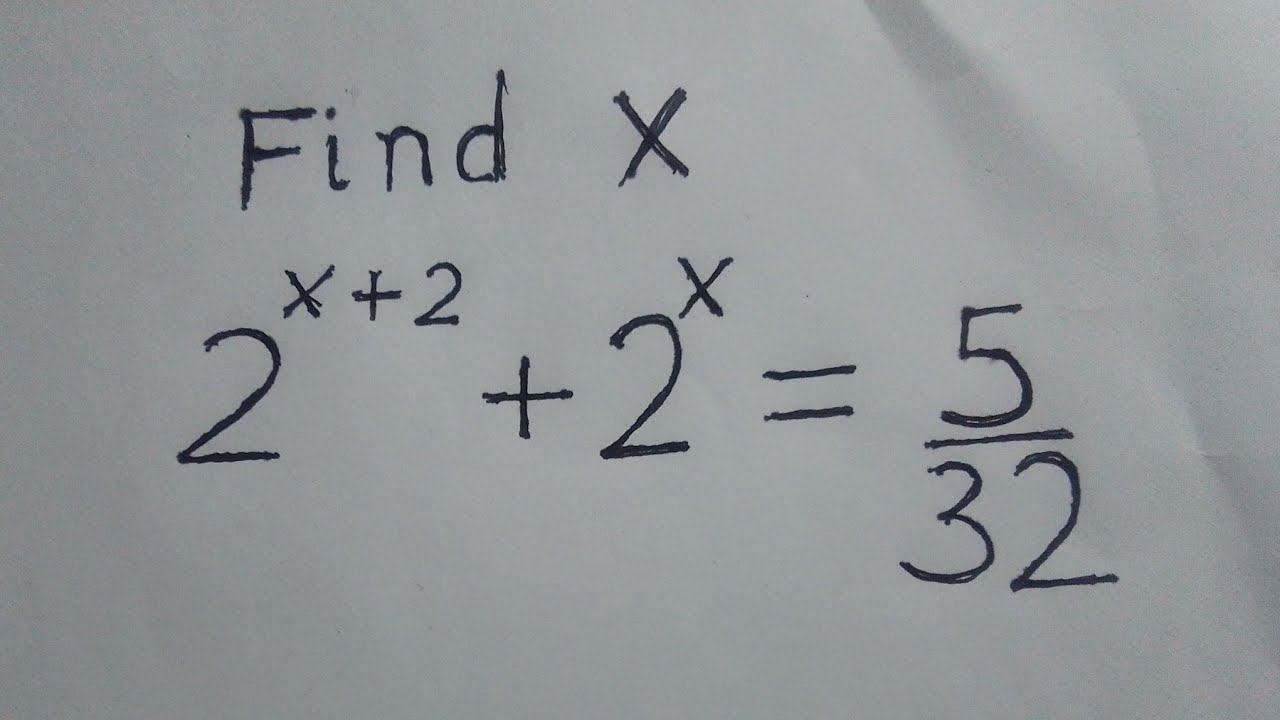 Find x
2^{x+2} + 2^x = \frac{5}{32}